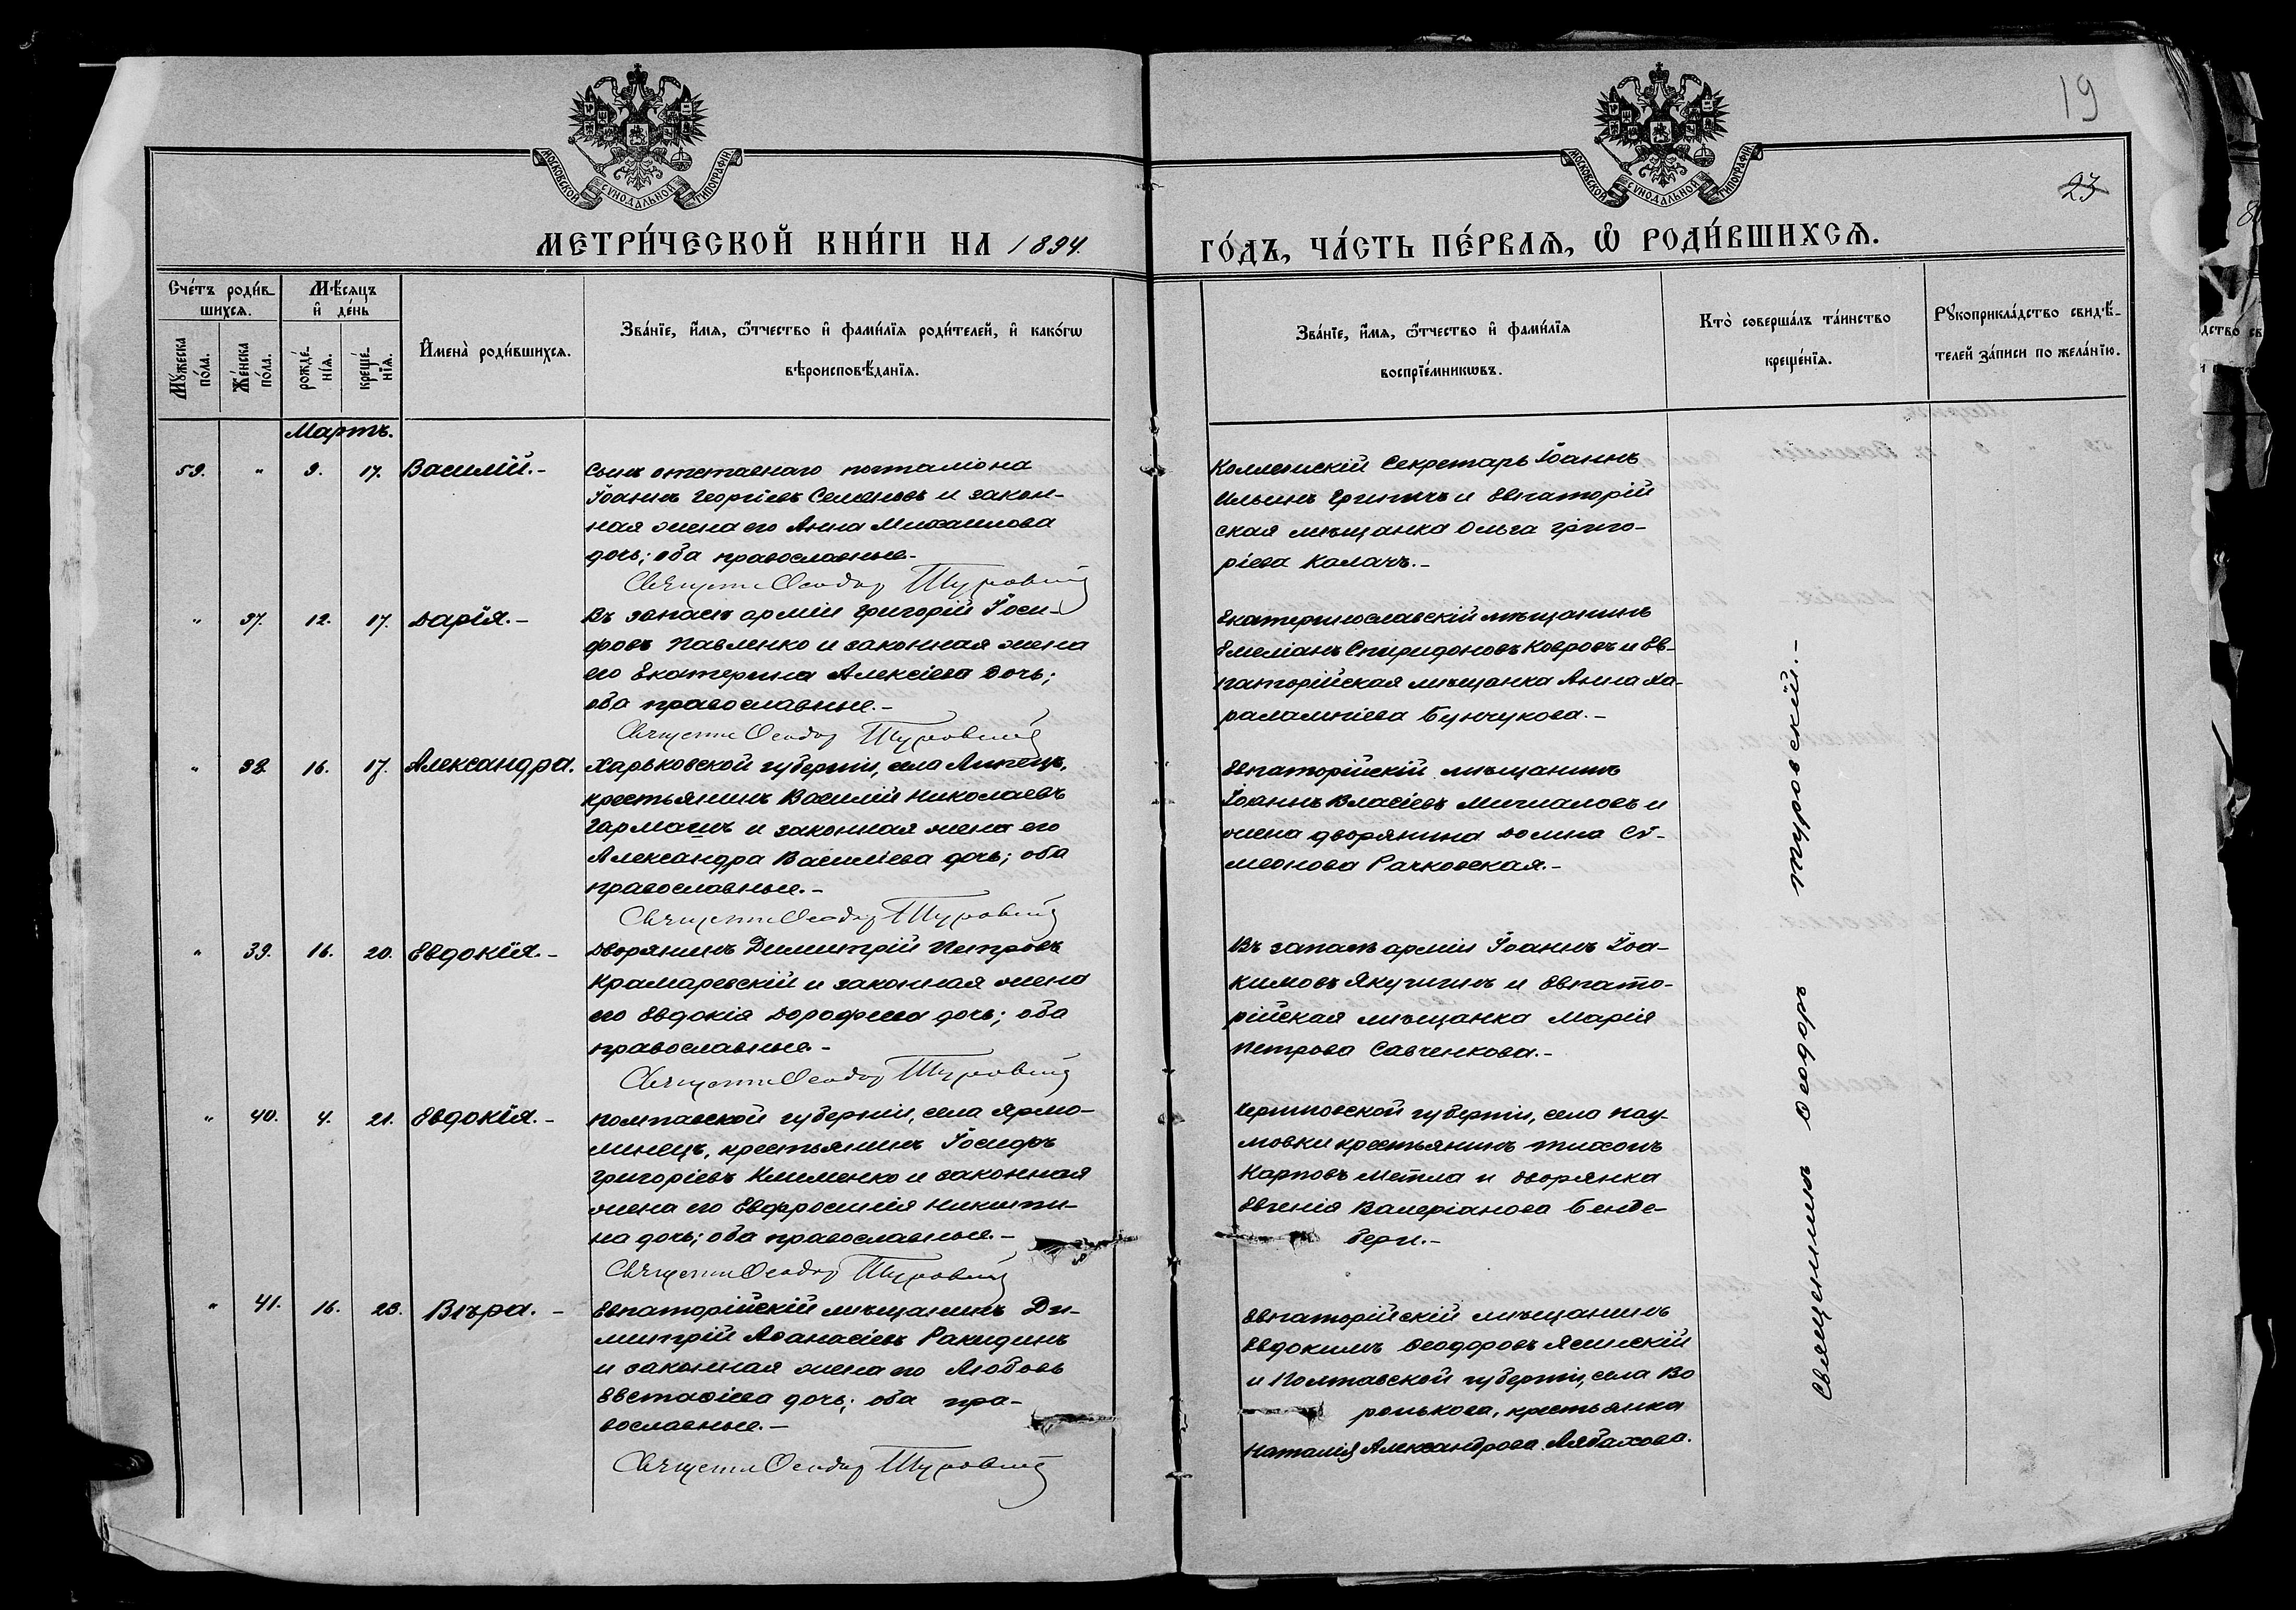 19
23
МОСКОВСКОЙ СѴНОДАЛЬНОЙ ТИПОГРАФІИ.
МОСКОВСКОЙ СѴНОДАЛЬНОЙ ТИПОГРАФІИ.
МЕТРИ́ЧЕСКОЙ КНИ́ГИ НА 1894.
ГО́ДЪ, ЧА́СТЬ ПЕ́РВАѦ, Ѽ РОДИ́ВШИХСѦ.
Счетъ роди́в-
шихсѧ.
Мꙋ́жеска по́ла.
Же́нска по́ла.
Мѣ́сѧцъ
и҆ де́нь
рожде́-
нїѧ.
креще́-
нїѧ.
И҆мена̀ роди́вшихсѧ.
Зва́нїе, и҆́мѧ, ѻ҆́тчество и҆ фами́лїѧ роди́телей, и҆ како́гѡ
вѣроисповѣ́данїѧ.
Зва́нїе, и҆́мѧ, ѻ҆́тчество и҆ фами́лїѧ
воспрїе́мникѡвъ.
Кто̀ соверша́лъ та́инство
креще́нїѧ.
Рꙋкоприкла́дство свидѣ́-
телей за́писи по жела́нїю.
Мартъ.
59. " 9. 17. Василій.-
Сынъ отставнаго почталіона
Іоаннъ Георгіевъ Семеновъ и закон-
ная жена его Анна Михаилова
дочь; оба православные.-
Священн Ѳеодор Туровскій
Коллежскій Секретарь Іоаннъ
Ильинъ и Евпаторій
ская мѣщанка Ольга Григо-
ріева Калачъ.-
" 37. 12. 17. Дарія.-
Въ запасѣ арміи Григорій Іоси-
фовъ Павленко и законная жена
его Екатерина Алексіева дочь;
оба православные.-
Священн Ѳеодор Туровскій
Екатеринославскій мѣщанинъ
Емеліанъ Спиридоновъ Ковровъ и Ев-
паторійская мѣщанка Анна Ха-
ралампіева Бунчукова.-
" 38. 16. 17. Александра.
Харьковской губерніи, села Липецъ,
крестьянинъ Василій Николаевъ
Гармашъ и законная жена его
Александра Василіева дочь; оба
православные.-
Священн Ѳеодор Туровскій
Евпаторійскій мѣщанинъ
Іоаннъ Власіевъ и
жена дворянина Домна Сѵ-
меонова Рачковская.-
" 39. 16. 20. Евдокія.-
Дворянинъ Димитрій Петровъ
Крамаревскій и законная жена
его Евдокія Дорофеева дочь; оба
православные.-
Священн Ѳеодор Туровскій
Въ запасѣ арміи Іоаннъ Іоа-
кимовъ Якунинъ и Евпато-
рійская мѣщанка Марія
Петрова Савченкова.-
" 40. 4. 21. Евдокія.-
Полтавской губерніи, села Ярмо-
линецъ, крестьянинъ Іосифъ
Григоріевъ Клименко и законная
жена его Евфросинія Никити-
на дочь; оба православные.-
Священн Ѳеодор Туровскій
Черниговской губерніи, села Нау-
мовки крестьянинъ Тихонъ
Карповъ Метла и дворянка
Евгенія Валеріанова Бенде-
бери.-
" 41. 16. 23. Вѣра.-
Евпаторійскій мѣщанинъ Ди-
митрій Аѳанасіевъ Ракидинъ
и законная жена его Любовь
Евстаѳіева дочь; оба пра-
вославные.-
Священн Ѳеодор Туровскій
Евпаторійскій мѣщанинъ
Евдокимъ Ѳеодоровъ Ясинскій
и Полтавской губерніи, села Во
ронькова, крестьянка
Наталія Александрова Лябахова.
Священникъ Ѳеодоръ Туровскій.-